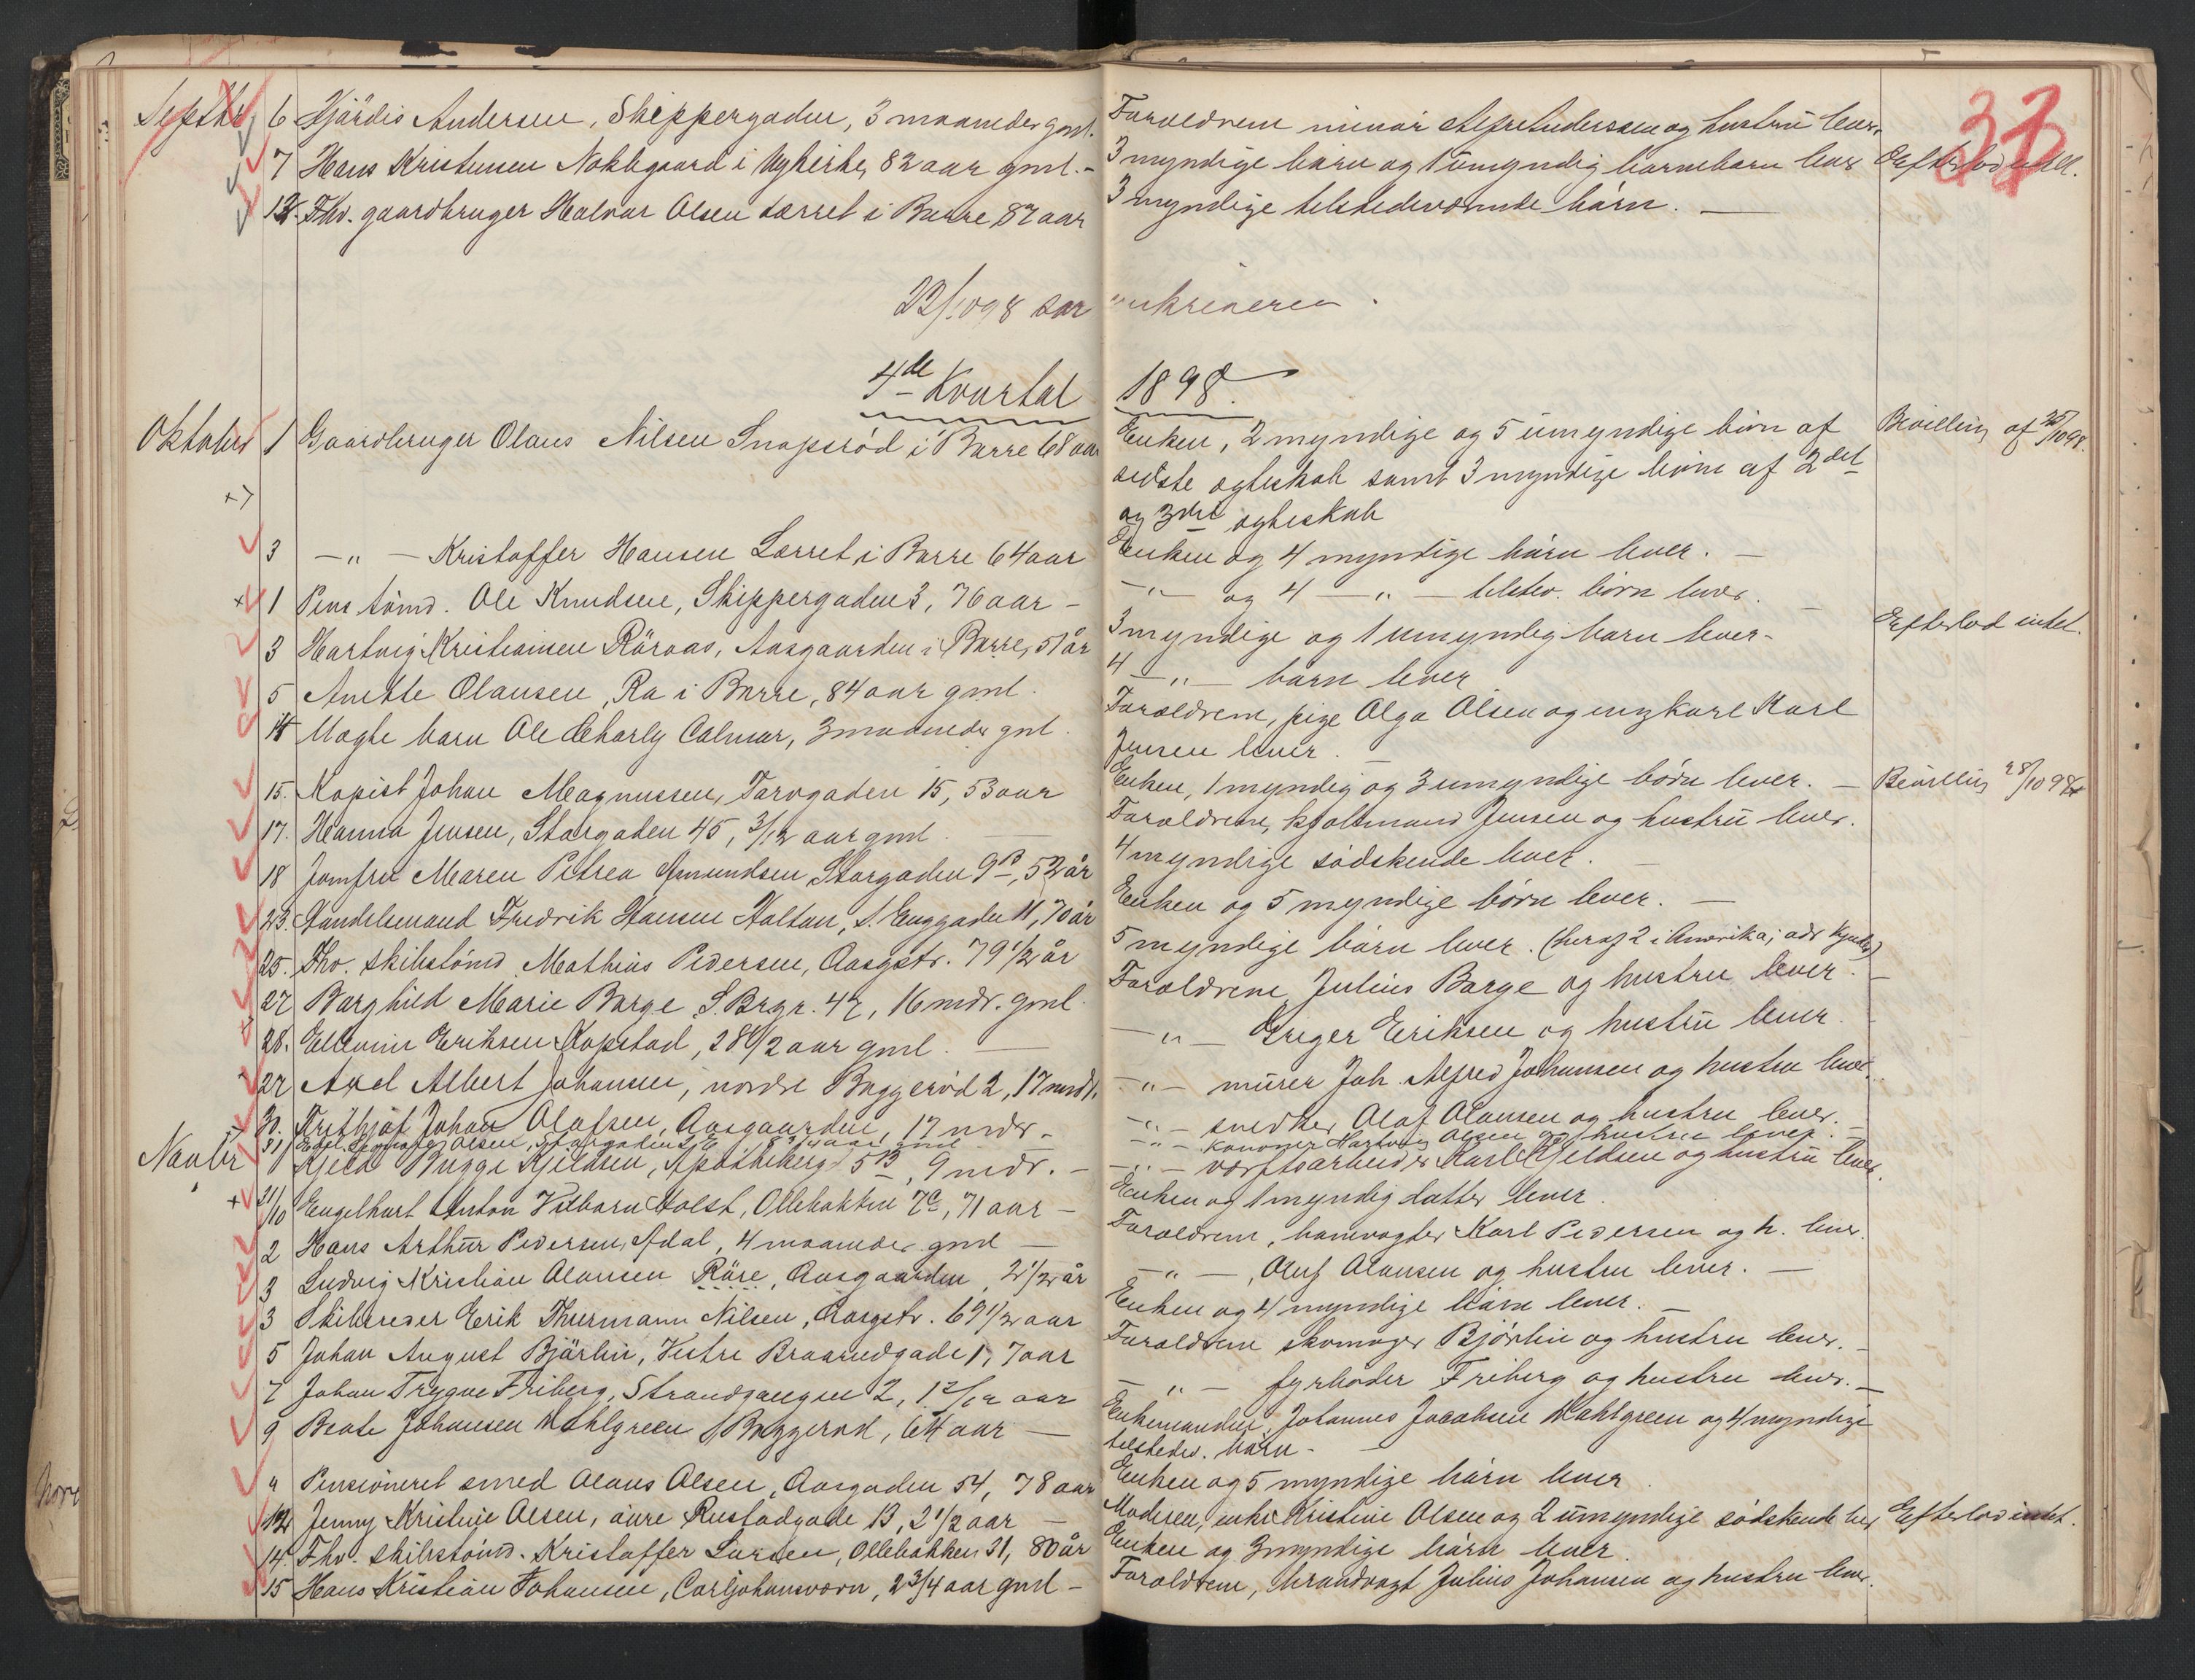 33
Septbr 6 Hjördis Andersen, Skippergaden, 3 maaneder gml. Forældrene minör Alfr Anderssen og hustru lever.
7 Hans Kristensen Nokkegaard i Nykirke, 82 aar gml. - 3 myndige börn og 1 umyndig barnebarn lever Efterlod intet.
12. Fhv. gaardbruger Halvor Olsen Lærret i Borre, 87 aar 3 myndige tilstedeværende börn. —
22/10 98
4de Kvartal 1898.
Oktober 1 Gaardbruger Olaus Nilsen Snapsröd i Borre 68 aar Enken, 2 myndige og 5 umyndige börn af Bevilling af 25/10 98.
sidste ægteskab samt 3 myndige börn af 2det
og 3die ægteskab
3 —"— Kristoffer Hansen Lærret i Borre 64 aar Enken og 4 myndige börn lever. —
1 Pens tömd. Ole Knudsen, Skippergaden 3, 76 aar - —"— og 4 —"— tilstev. börn lever. —
3 Hartvig Kristiansen Röraas, Aasgaarden i Borre, 51 år 3 myndige og 1 umyndig barn lever - Efterlod intet.
5 Anette Olausen, Ra i Borre, 84 aar gml. 4 —"— barn lever
14 Uægte barn Ole Charly Calmar, 3 maaneder gml. Forældrene, pige Olga Olsen og ungkarl Karl
Jensen lever. —
15. Kopist Johan Magnussen, Torvgaden 15, 53 aar Enken, 1 myndig og 3 umyndige börn lever. — Bevilling 28/10 98
17. Hanna Jensen, Storgaden 45, 3/12 aar gml. — Forældrene, Jensen og hustru lever.
18 Jomfru Maren Petrea Amundsen, Storgaden 9B, 52 år 4 myndige södskende lever. —
23. Handelsmand Fredrik Hansen Holtan, S. Enggaden 11, 70 år Enken og 5 myndige börn lever. —
25. Fhv. skibstömd Mathias Pedersen, Aasgstr. 79 1/2 år 5 myndige börn lever. (heraf 2 i Amerika; adr )
27 Borghild Marie Borge, S. Brgr. 42, 16 mdr. gml. Forældrene Julius Borge og hustru lever. —
26. Ellevine Eriksen Kopstad, 28 1/2 aar gml. — —"— Griger Eriksen og hustru lever.
27 Axel Albert Johansen, nordre Baggeröd 2, 17 mdr. —"— murer Joh. Alfred Johansen og hustru lever.
30. Frithjof Johan Olafsen, Aasgaarden, 17 mdr. —"— snedker Olaf Olausen og hustru lever. —
31/ Olsen, Storgaden 8 3/4 aar gml —"— Kanoner Hartvig Olsen og hustru lever. —
Novbr 1 Kjeld Bugge Kjeldsen, Apothekerg. 5B, 9 mdr. - —"— værftsarbeider Karl Kjeldsen og hustru lever.
31/10 Engelhart Anton Vilbaru Holst, Ollebakken 7C, 71 aar - Enken og 1 myndig datter lever.
2 Hans Arthur Pedersen, Adal, 4 maaneder gml — Forældrene, banevogter Karl Pedersen og h. lever.
3 Ludvig Kristian Olausen Röre, Aasgaarden, 2 1/2 år —"—, Oluf Olausen og hustru lever. —
3 Skibsreder Erik Thurmann Nilsen, Aasgstr. 69 1/2 aar Enken og 4 myndige börn lever. —
5 Johan August Björlin, Vestre Braarudgade 1, 7 aar Forældrene skomager Björlin og hustru lever. -
7 Johan Trygve Friberg, Strandgangen 2, 1 2/12 aar —"— fyrböder Friberg og hustru lever. —
9 Beate Johansen Wahlgreen, Baggeröd, 64 aar — Enkemanden Johannes Jacobsen Wahlgreen og 4 myndige
tilstedev. börn. —
" Pensioneret smed Olaus Olsen, Aasgaden 54, 78 aar Enken og 5 myndige börn lever.
12 Jenny Kristine Olsen, övre Rustadgade 13, 2 1/2 aar — Moderen, enke Kristine Olsen og 2 umyndige södskende lev. Efterlod intet.
14. Fhv. skibstömd. Kristoffer Larsen, Ollebakken 31, 80 år Enken og 3 myndige börn lever.
15 Hans Kristian Johansen, Carljohansværn, 2 3/4 aar gml - Forældrene, brandvagt Julius Johansen og hustru lever.